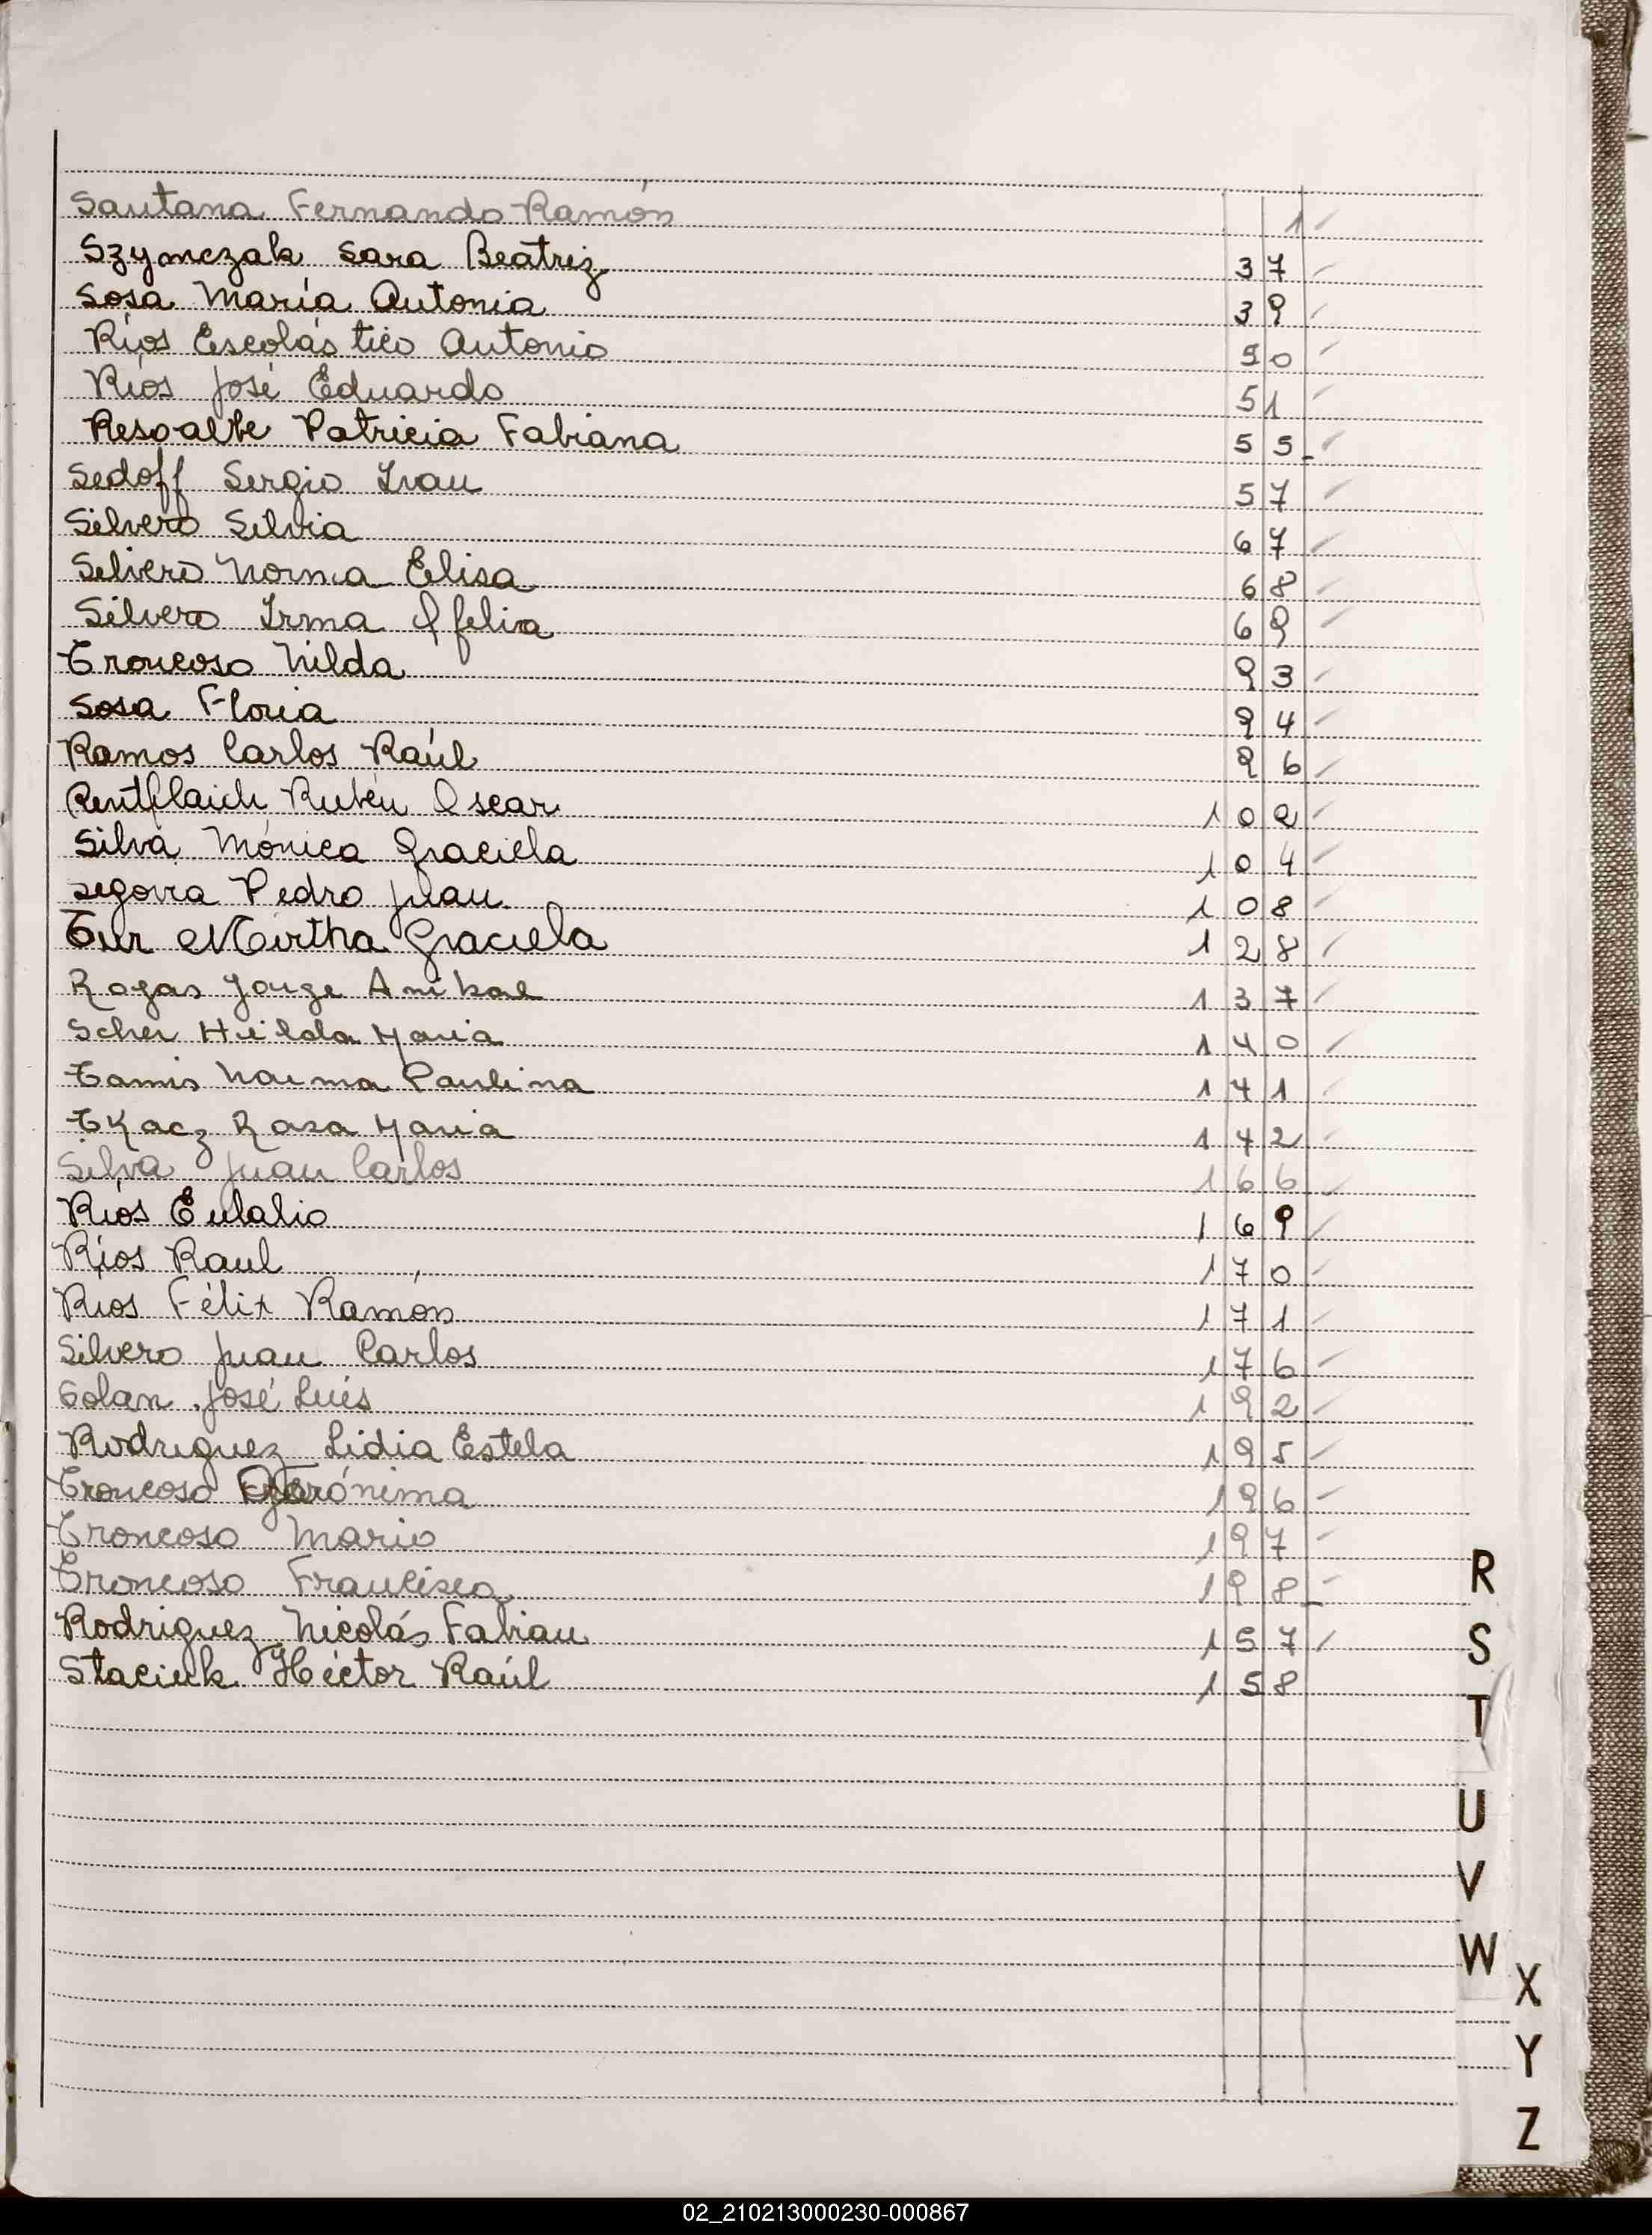 Santana Fernando Ramón 1
Szymczak Sara Beatriz 37
Sosa María Antonia 39
Ríos Escolástico Antonio 50
Ríos José Eduardo 51
Patricia Fabiana 55
Sedoff Sergio Ivan 57
Silvero Silvia 67
Silvero Norma Elisa 68
Silvero Irma Ofelia 69
Troncoso Nilda 93
Sosa Floria 94
Ramos Carlos Raúl 96
Rubén Oscar 102
Silva Mónica Graciela 104
Segovia Pedro Juan 108
Tur Mirtha Graciela 128
Rojas Jorge Anibal 137
Scher Hilda Maria 140
Tamis Norma Paulina 141
Tkacz Rosa Maria 142
Silva Juan Carlos 166
Ríos Eulalio 169
Ríos Raul 170
Rios Félix Ramón 171
Silvero Juan Carlos 176
José Luis 192
Rodriguez Lidia Estela 195
Troncoso Gerónima 196
Troncoso Mario 197
Troncoso Francisco 198
Rodriguez Nicolás Fabian 157
Staciuk Héctor Raúl 158
R
S
T
U
V
W
X
Y
Z
02_210213000230-000867